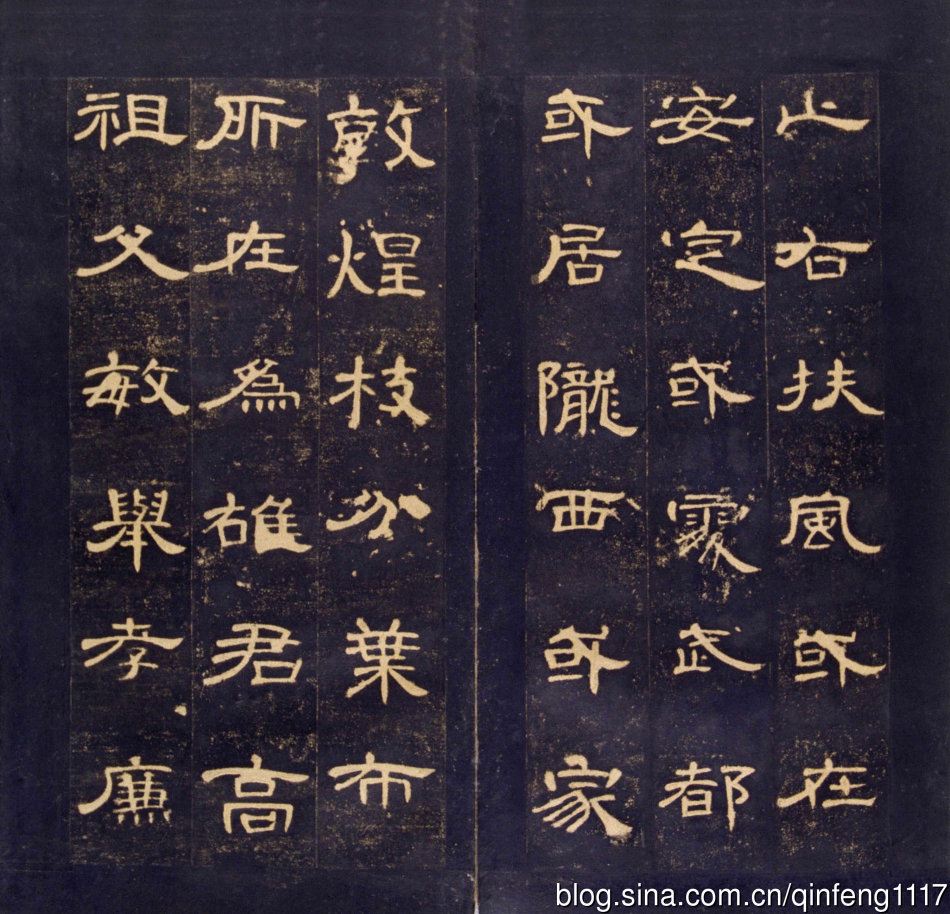 止右扶風或在
安定或處武都
或居隴西或家
敦煌枝分葉布
所在為雄君高
祖父敏舉孝廉
blog.sina.com.cn/qinfeng1117